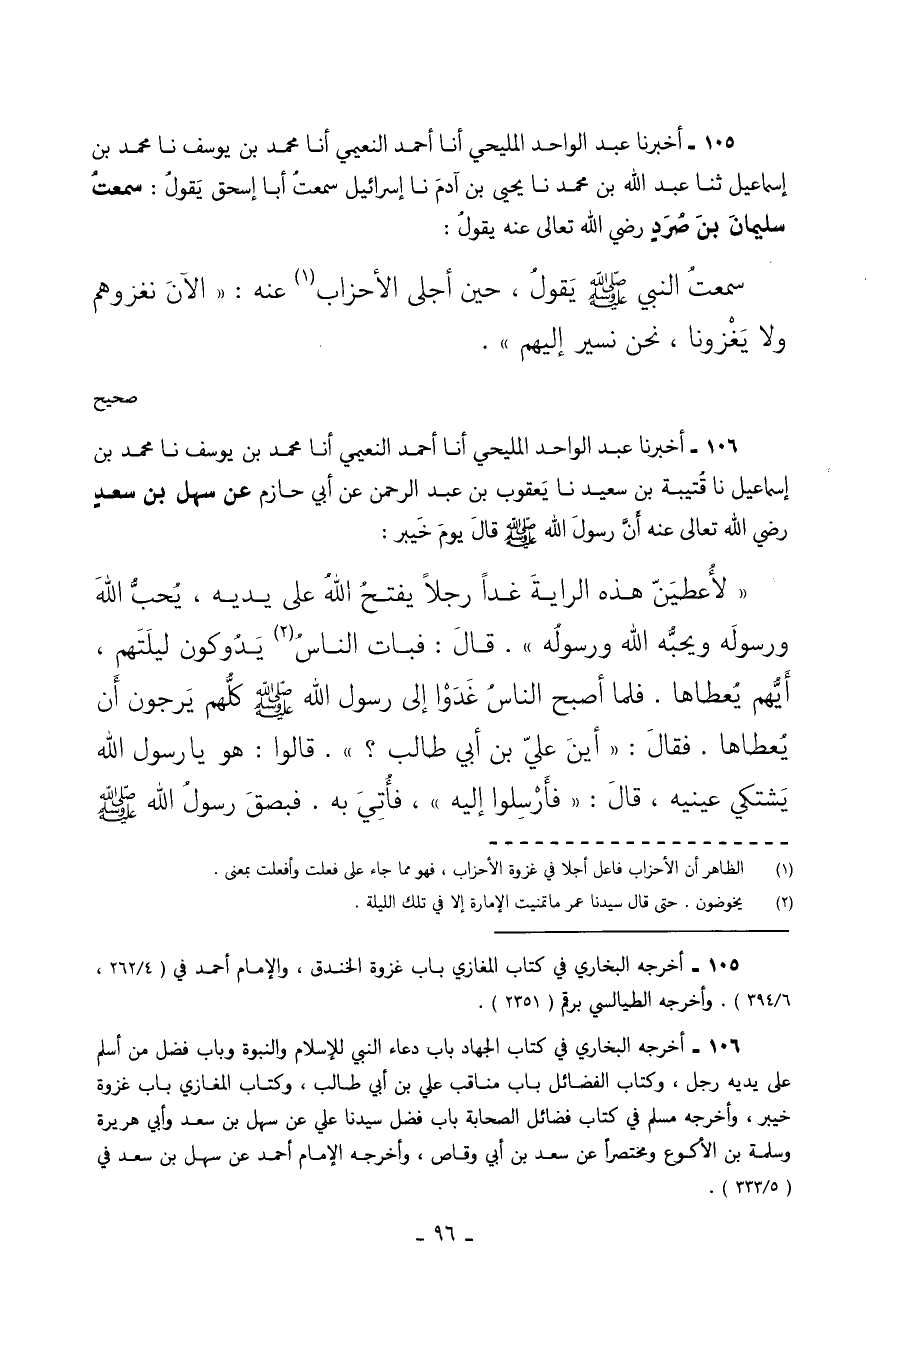 ١٠٥ ـ أخبرنا عبد الواحد المليحي أنا أحمد النعيمي أنا محمد بن يوسف نا محمد بن
إسماعيل ثنا عبد الله بن محمد نا يحيى بن آدمَ نا إسرائيل سمعتُ أبا إسحق يَقولُ : سمعتُ
سليمانَ بنَ صُرَدٍ رضي الله تعالى عنه يقولُ :
سمعتُ النبي ﷺ يَقولُ ، حين أجلى الأحزاب(١) عنه : « الآنَ نغزوهم
ولا يَغْزونا ، نحن نسير إليهم » .
صحيح
١٠٦ ـ أخبرنا عبد الواحد المليحي أنا أحمد النعيمي أنا محمد بن يوسف نا محمد بن
إسماعيل نا قُتيبة بن سعيد نا يَعقوب بن عبد الرحمن عن أبي حازم عن سهل بن سعدٍ
رضي الله تعالى عنه أَنَّ رسولَ الله ﷺ قالَ يومَ خَيبر :
« لأُعطيَنّ هذه الرايةَ غداً رجلاً يفتحُ اللهُ على يديه ، يُحبُّ اللهَ
ورسولَه ويحبُّه الله ورسولُه » . قالَ : فبات الناسُ(٢) يَدُوكون ليلَتَهم ،
أَيُّهم يُعطاها . فلما أصبح الناسُ غَدَوْا إلى رسول الله ﷺ كلُّهم يَرجون أن
يُعطاها . فقالَ : « أينَ عليّ بن أبي طالب ؟ » . قالوا : هو يارسول الله
يَشتكي عينيه ، قالَ : « فأَرْسِلوا إليه » ، فأُتِيَ به . فبصقَ رسولُ الله ﷺ
(١) الظاهر أن الأحزاب فاعل أجلا في غزوة الأحزاب ، فهو مما جاء على فعلت وأفعلت بمعنى .
(٢) يخوضون . حتى قال سيدنا عمر ماتمنيت الإمارة إلا في تلك الليلة .
١٠٥ ـ أخرجه البخاري في كتاب المغازي باب غزوة الخندق ، والإمام أحمد في ( ٢٦٢/٤ ،
٣٩٤/٦ ) . وأخرجه الطيالسي برقم ( ٢٣٥١ ) .
١٠٦ ـ أخرجه البخاري في كتاب الجهاد باب دعاء النبي للإسلام والنبوة وباب فضل من أسلم
على يديه رجل ، وكتاب الفضائل باب مناقب علي بن أبي طالب ، وكتاب المغازي باب غزوة
خيبر ، وأخرجه مسلم في كتاب فضائل الصحابة باب فضل سيدنا علي عن سهل بن سعد وأبي هريرة
وسلمة بن الأكوع ومختصراً عن سعد بن أبي وقاص ، وأخرجه الإمام أحمد عن سهل بن سعد في
( ٣٣٣/٥ ) .
ـ ٩٦ ـ